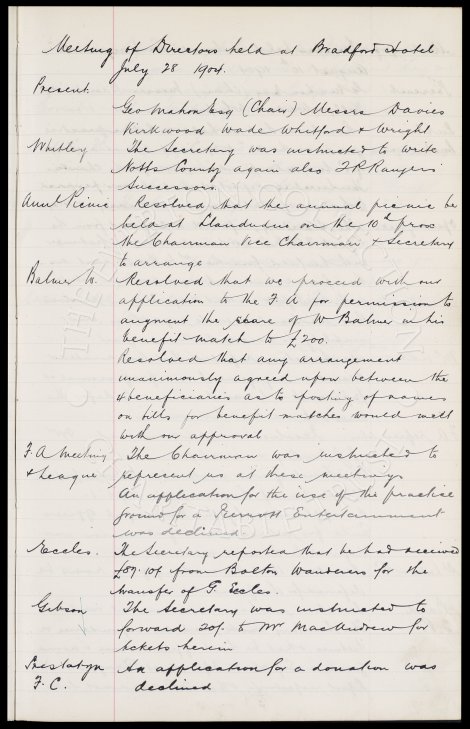 Meeting of Directors held at Bradford Hotel
July 28 1904.
Present.
Geo Mahon Esq (Chair) Messrs Davies
Kirkwood Wade Whitford & Wright
Whitley The Secretary was instructed to write
Notts County again also Q P Rangers
Successors
Annl Picnic Resolved that the annual picnic be
held at Llandudno on the 10th prox
the Chairman Vice Chairman & Secretary
to arrange
Balmer W. Resolved that we proceed with our
application to the F A for permission to
augment the share of W Balmer in his
benefit match to £200.
Resolved that any arrangement
unanimously agreed upon between the
4 beneficiaries as to posting of names
on bills for benefit matches would meet
with our approval
F. A meeting The Chairman was instructed to
& League represent us at these meetings
An application for the use of the practise
ground for a Pierrott Entertainment
was declined
Eccles. The Secretary reported that he had received
£87. 10/. from Bolton Wanderers for the
transfer of G. Eccles.
Gibson The Secretary was instructed to
forward 20/. to Mr MacAndrew for
tickets herein
Prestatyn An application for a donation was
F. C. declined